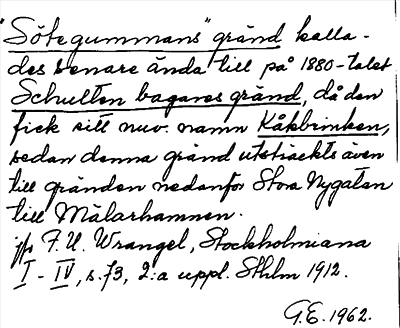 "Sötegummans" gränd kalla-
des senare ända till på 1880-talet
Schulten bagares gränd, då den
fick sitt nuv. namn Kåkbrinken,
sedan denna gränd utsträckts även
till gränden nedanför Stora Nygatan
till Mälarhamnen.
jfr F. U. Wrangel, Stockholmiana
I - IV, s. 73, 2:a uppl. Sthlm 1912.
G.E. 1962.